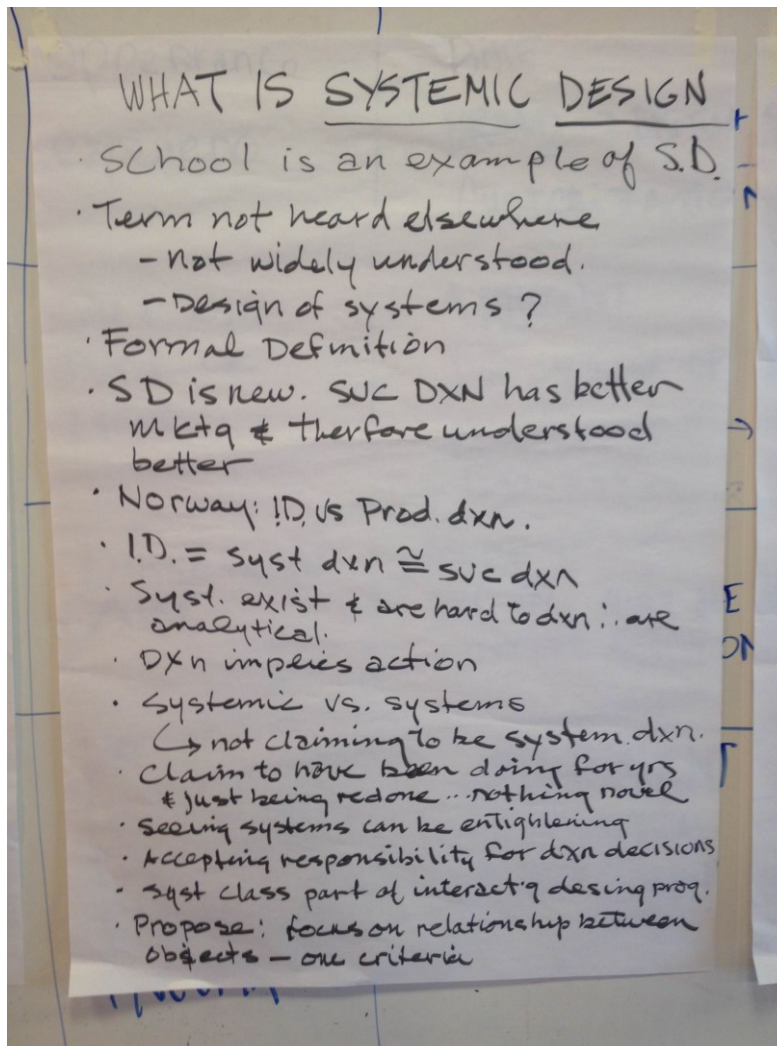 WHAT IS SYSTEMIC DESIGN
· School is an example of S.D.
· Term not heard elsewhere
- Not widely understood.
- Design of systems?
· Formal Definition
· SD is new. SVC DXN has better
mktg & therfore understood
better
· Norway: I.D. vs Prod. dxn.
· I.D. = Syst dxn ≅ svc dxn
· Syst. exist & are hard to dxn ∴ are
analytical.
· DXn implies action
· Systemic vs. systems
↳ not claiming to be system dxn.
· Claim to have been doing for yrs
& just being redone... nothing novel
· Seeing systems can be enlightening
· Accepting responsibility for dxn decisions
· Syst class part of interact'g desing prog.
· Propose: focus on relationship between
objects - one criteria
E
ON